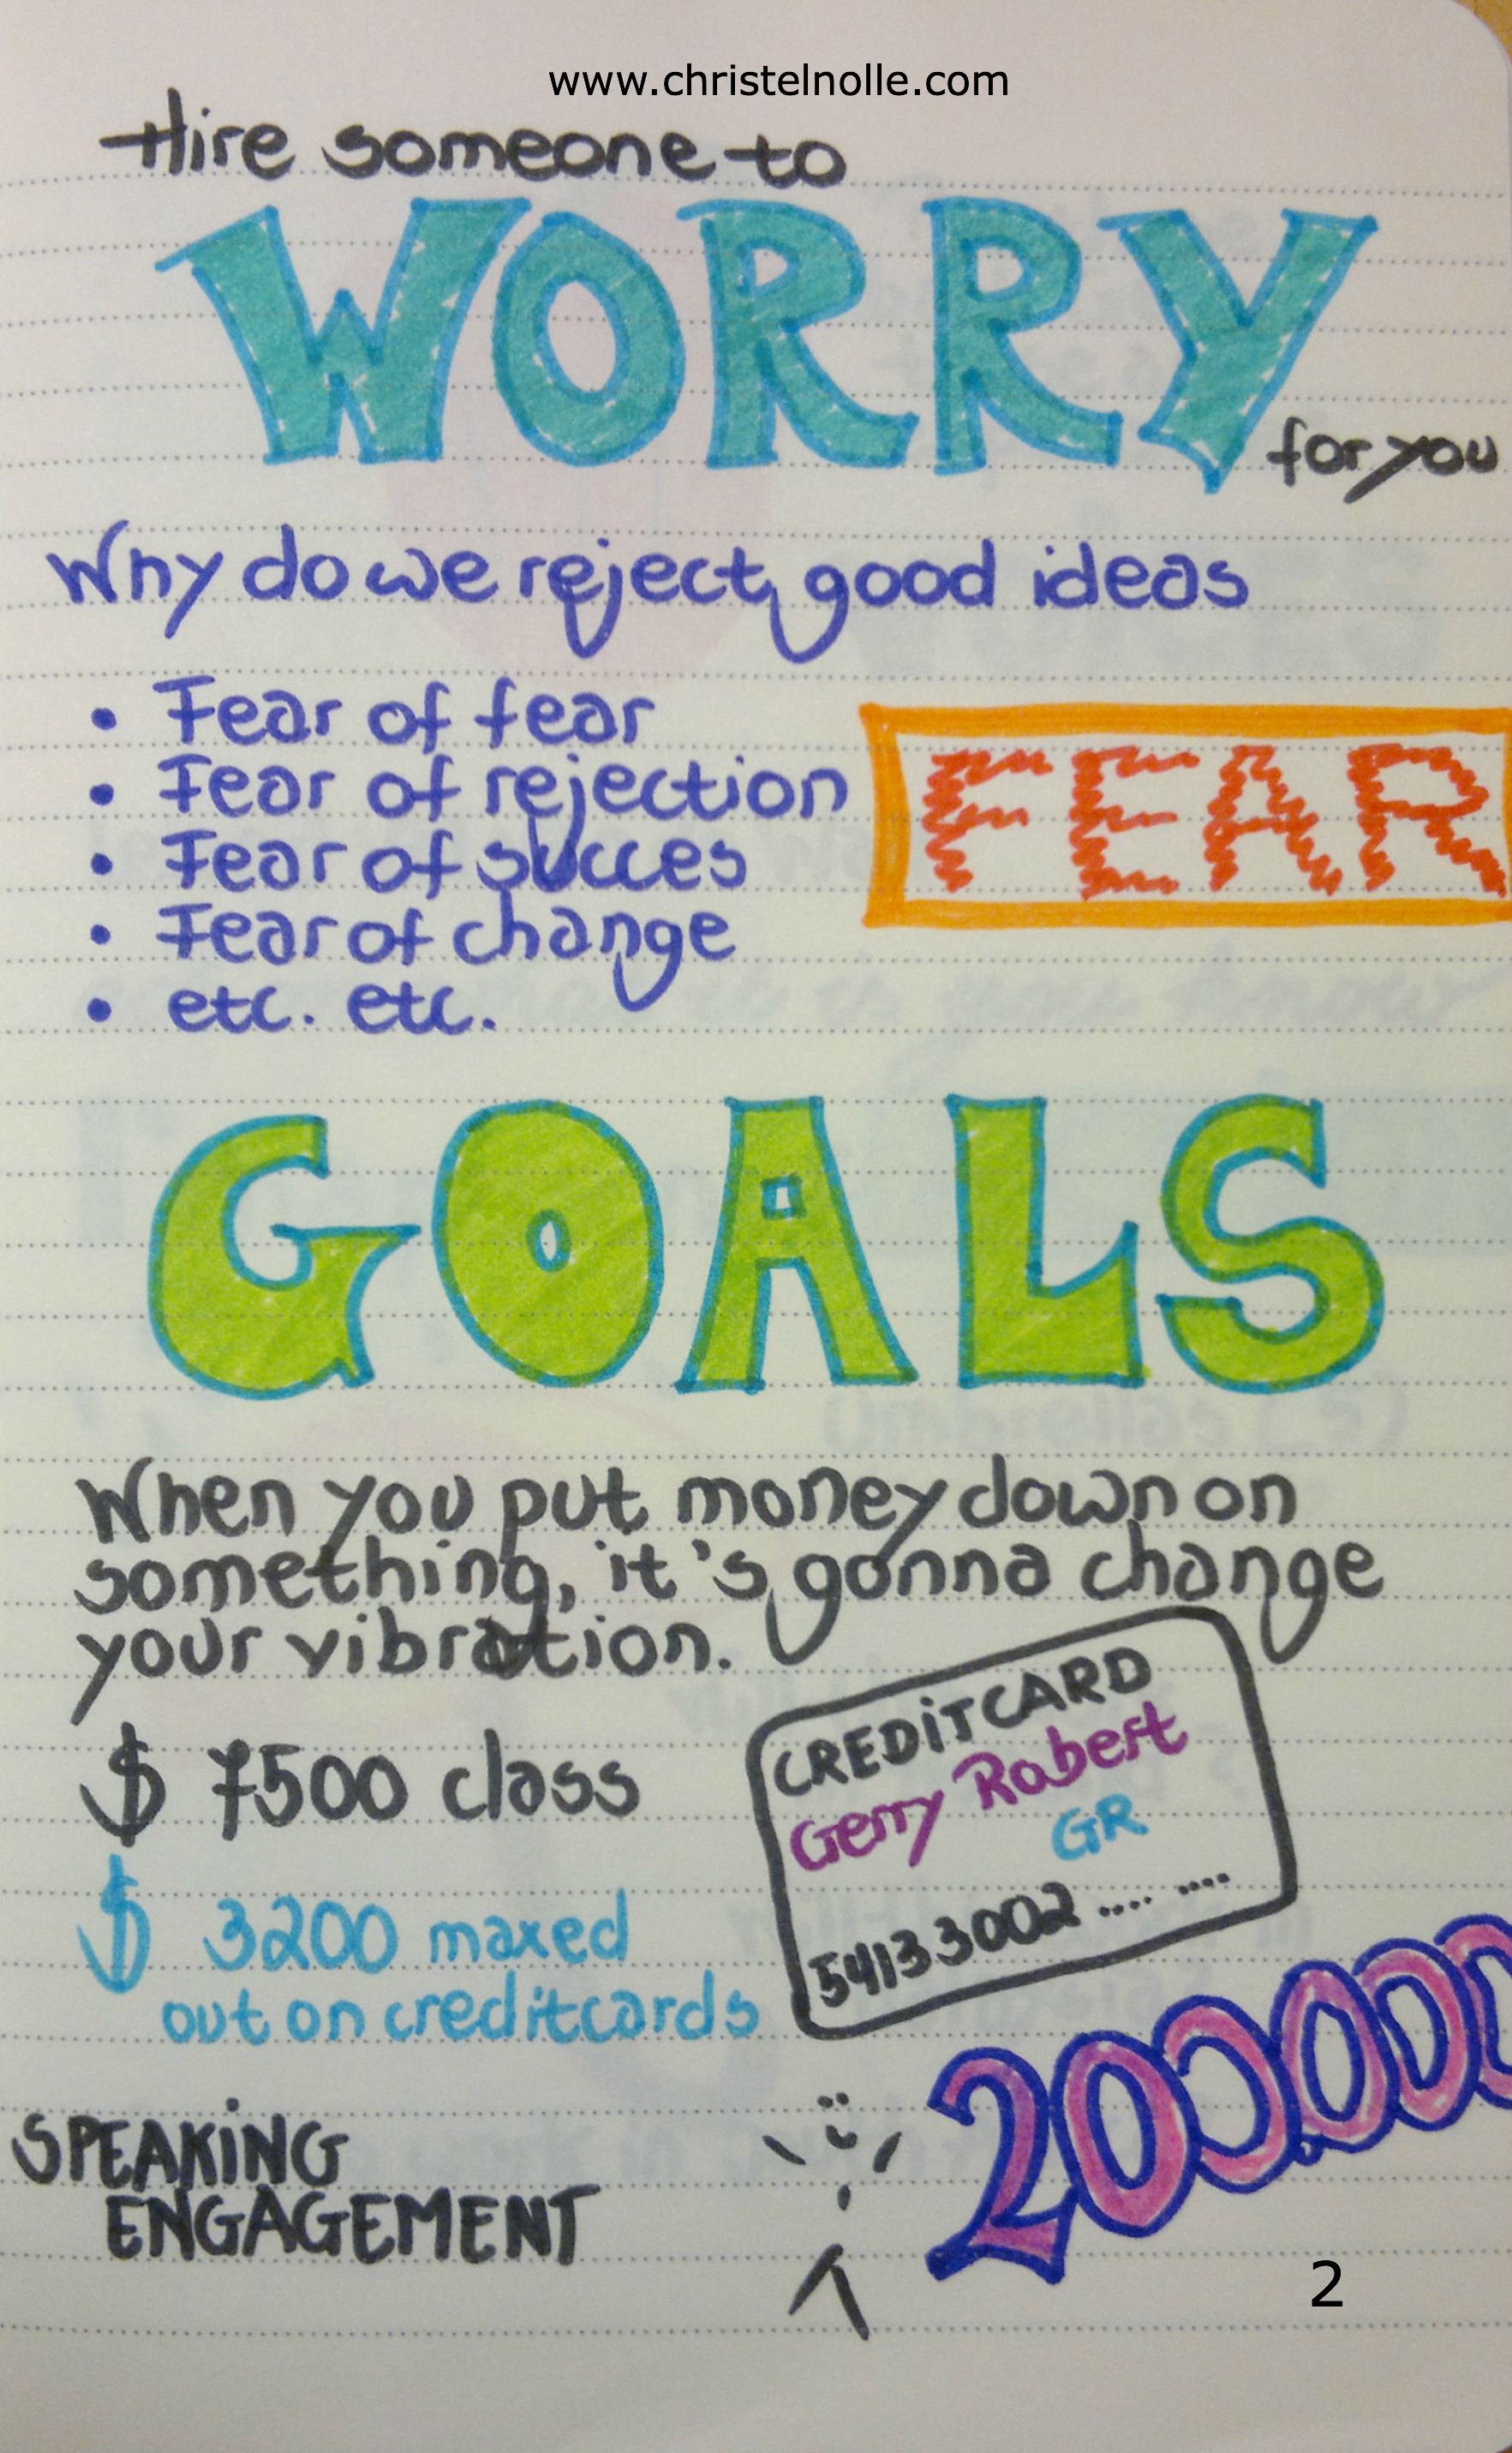 www.christelnolle.com
Hire someone to
WORRY
for you
Why do we reject good ideas
• Fear of fear
• Fear of rejection
• Fear of succes
• Fear of change
• etc. etc.
FEAR
GOALS
When you put money down on
something, it's gonna change
your vibration.
$ 7500 class
$ 3200 maxed
out on creditcards
CREDiTCARD
Gerry Robert
GR
54133002 .... ....
SPEAKiNG
ENGAGEMENT
200.000
2